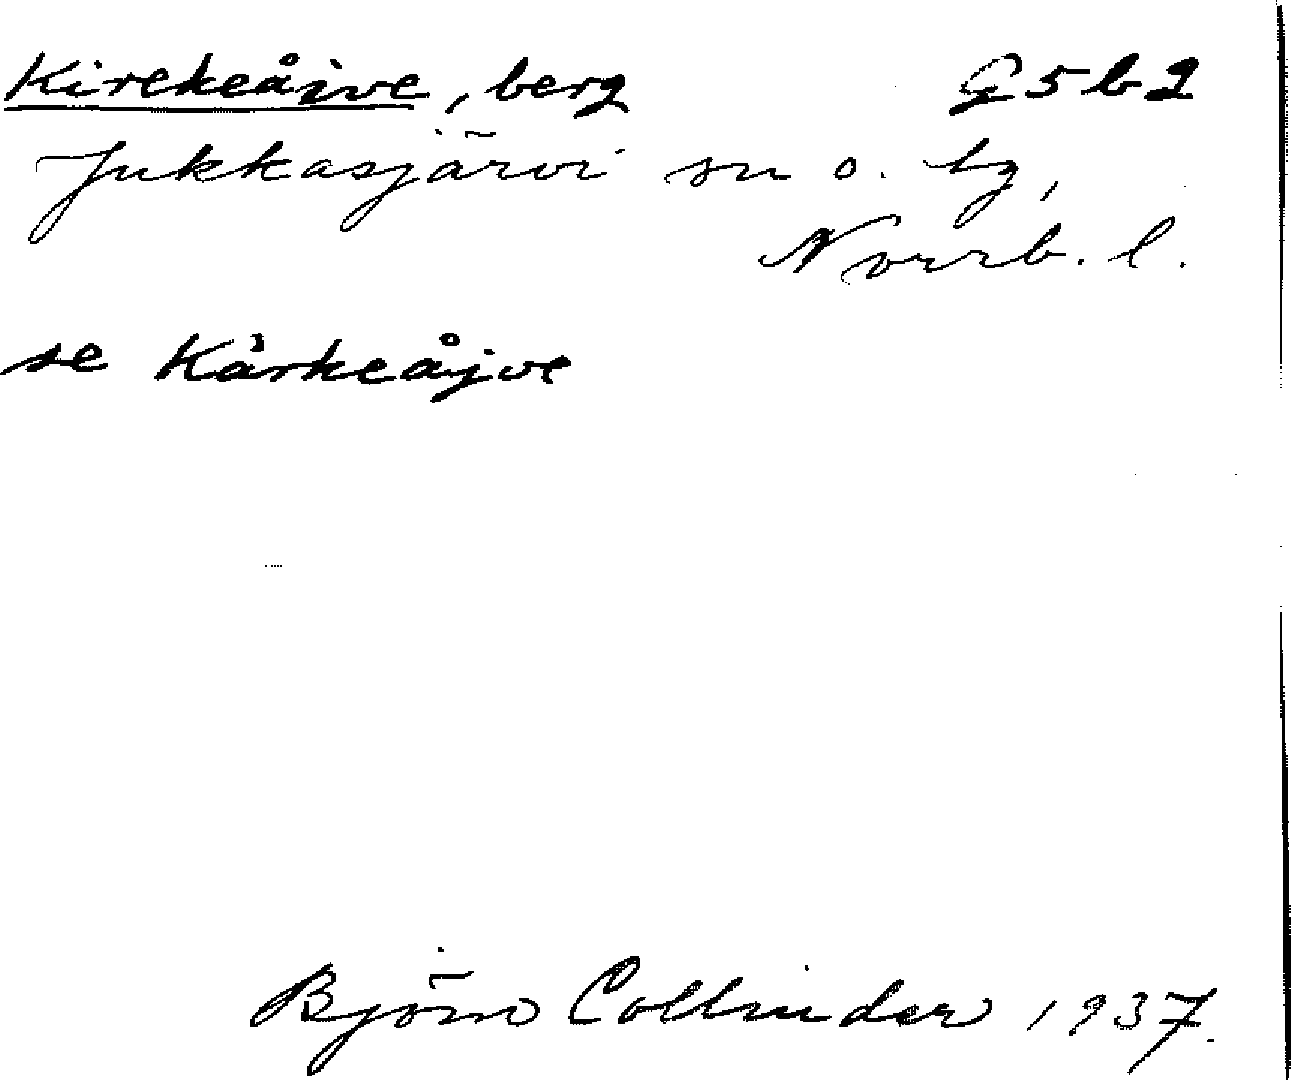 Kirekeåive, berg G5b2
Jukkasjärvi sn o. tg,
Norrb. l.
se Kårkeåjve
Björn Collinder 1937.